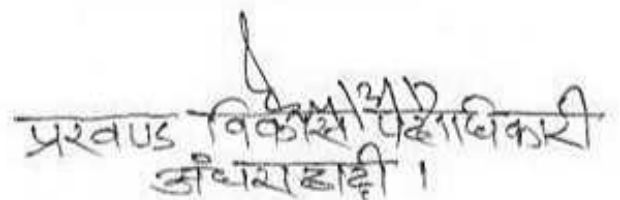 प्रखण्ड विकास पदाधिकारी
अंधराठाढ़ी ।